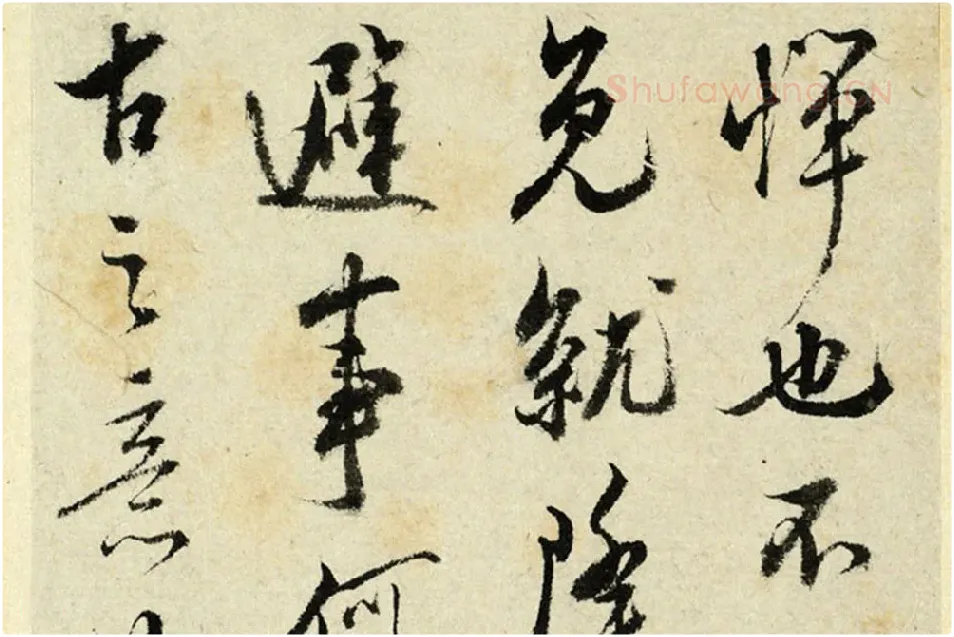 憚也不
免就
避事何
古之意
Shufawang.CN